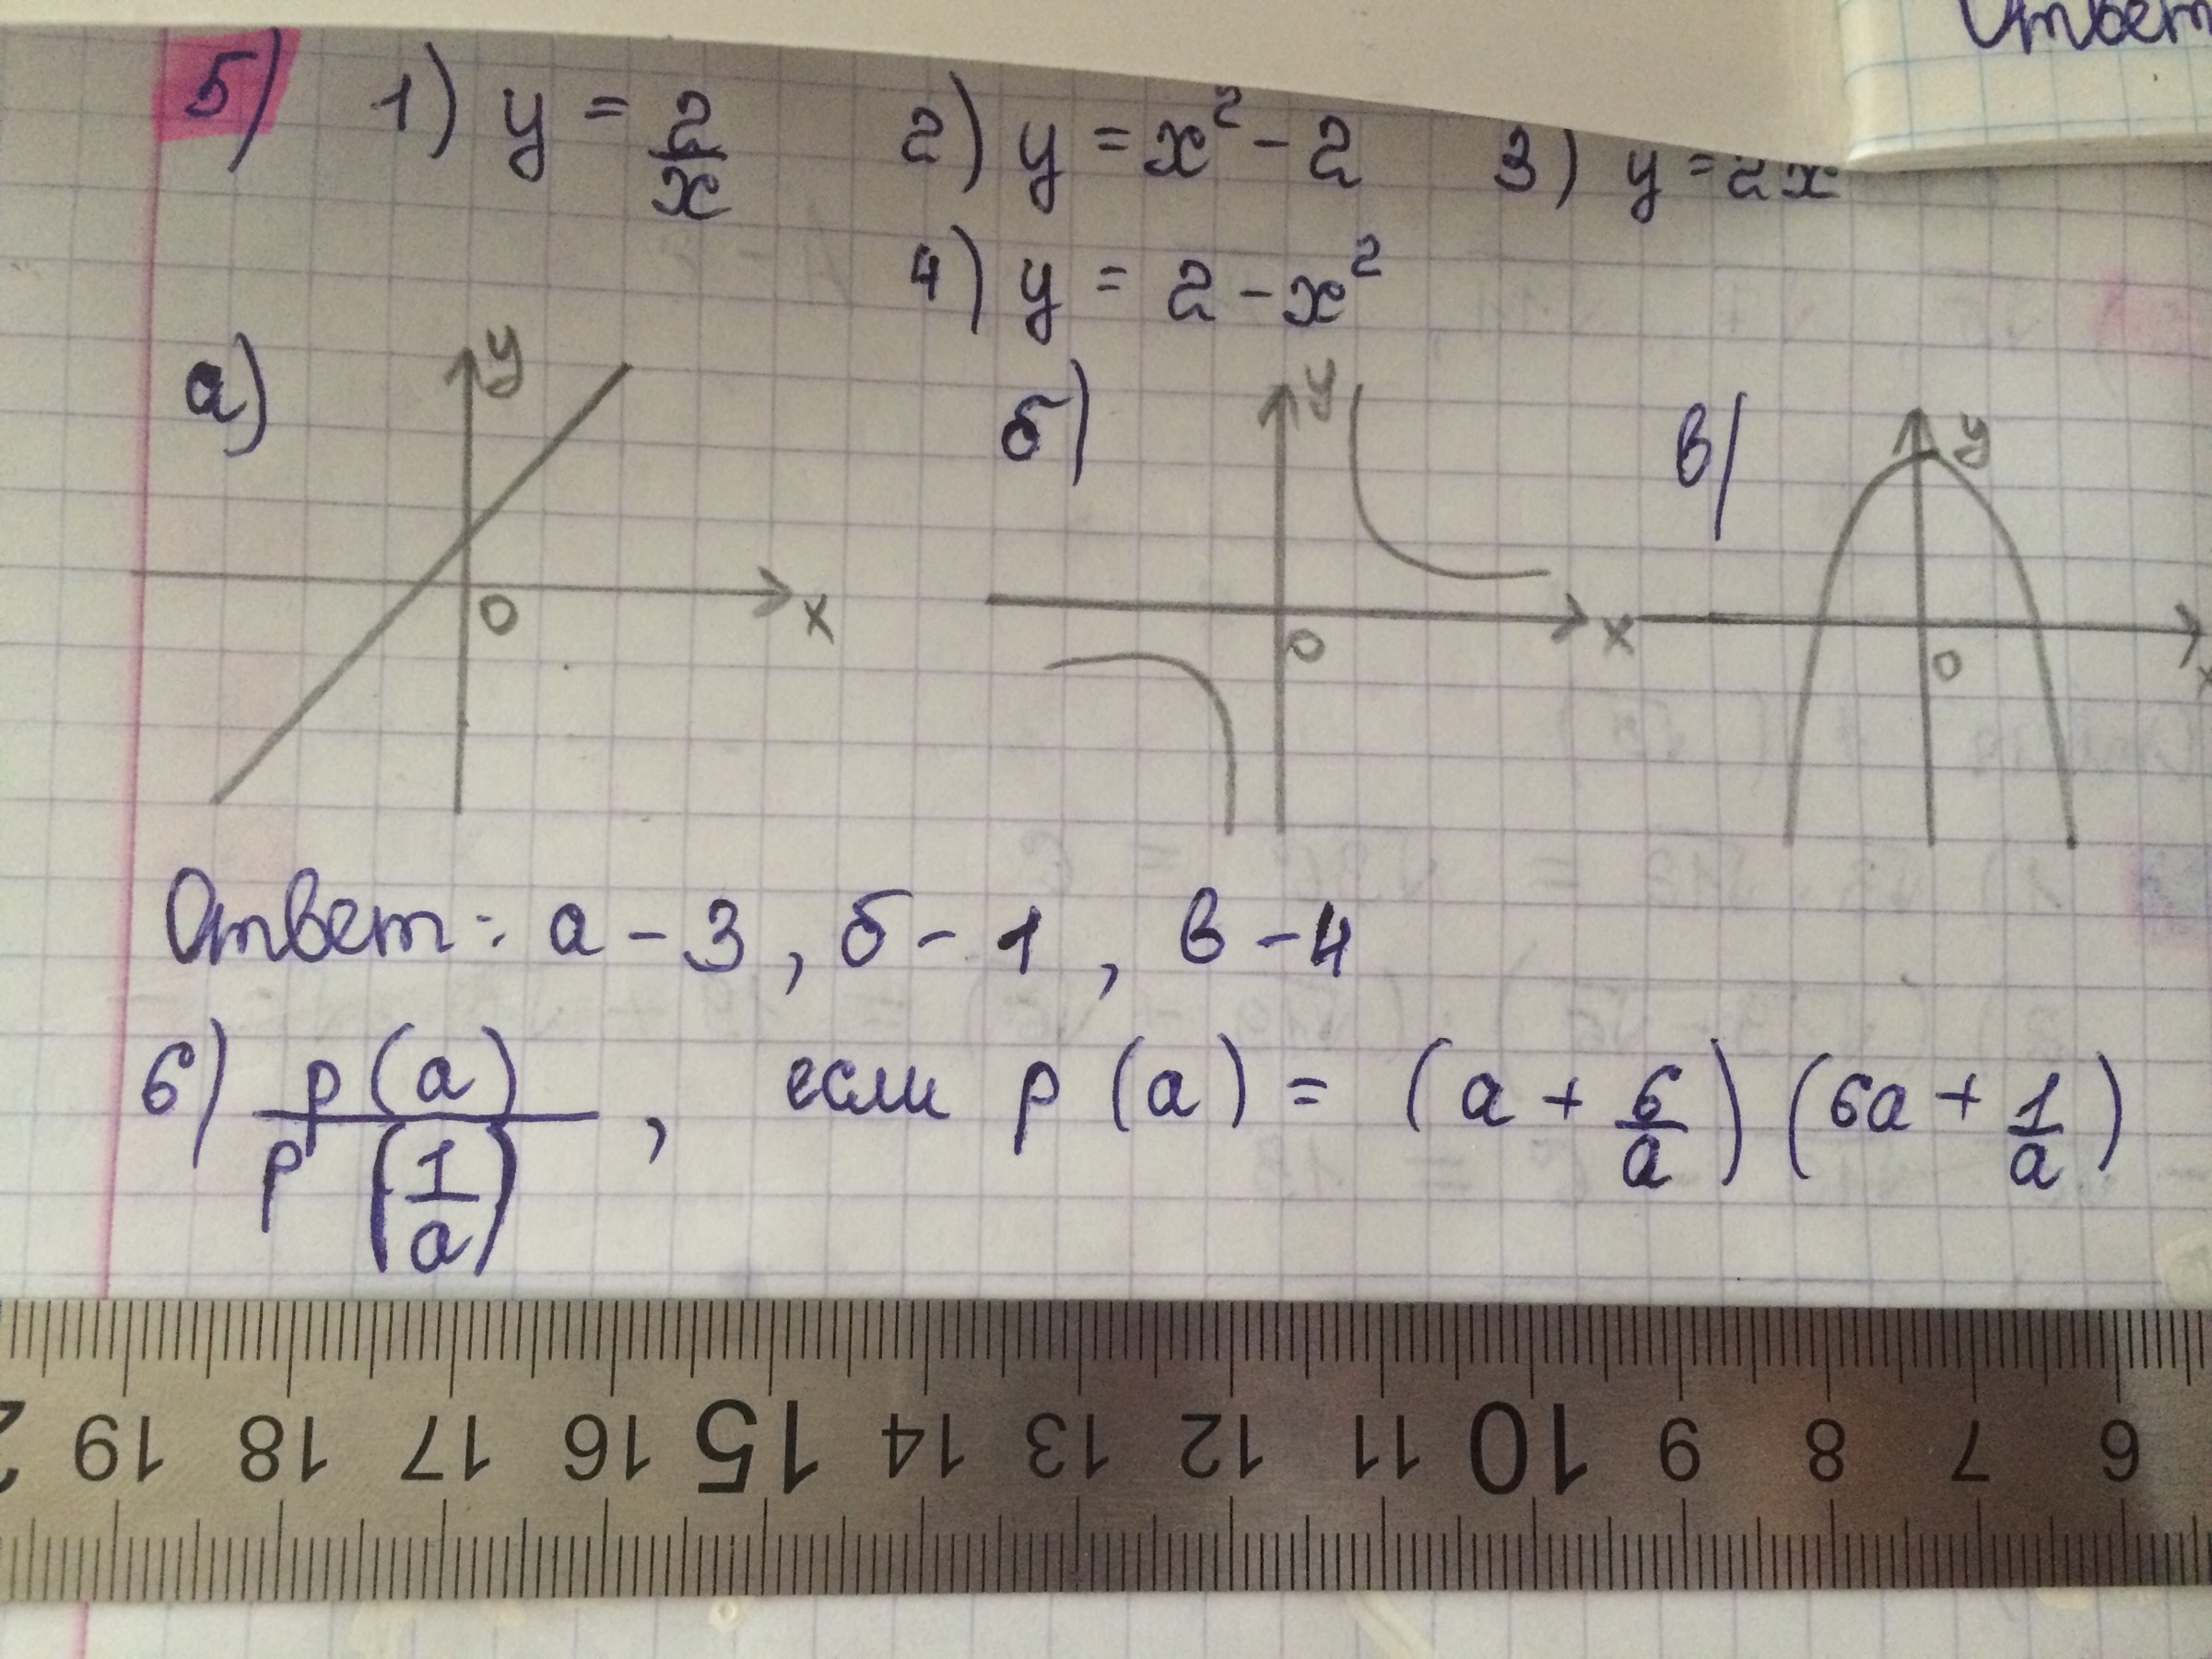 Ответ
5) 1) y = 2/x 2) y = x² - 2 3) y = 2x
4) y = 2 - x²
а) y б) y в) y
0 x 0 x 0 x
Ответ: а - 3, б - 1, в - 4
6) p(a) / p(1/a), если p(a) = (a + 6/a)(6a + 1/a)
19 18 17 16 15 14 13 12 11 10 9 8 7 6